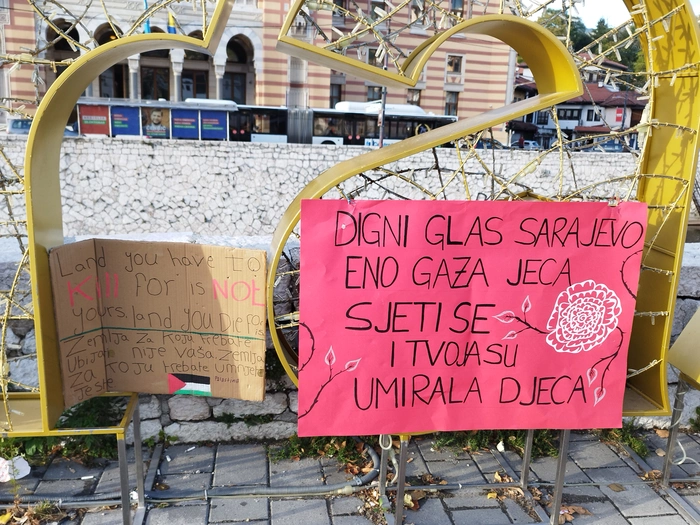 Land you have to
Kill for is NOT
yours. land you Die for is
Zemlja za koju trebate
Ubijati nije vaša. Zemlja
za koju trebate umrijeti
jeste
Palestina
DIGNI GLAS SARAJEVO
ENO GAZA JECA
SJETI SE
I TVOJA SU
UMIRALA DJECA